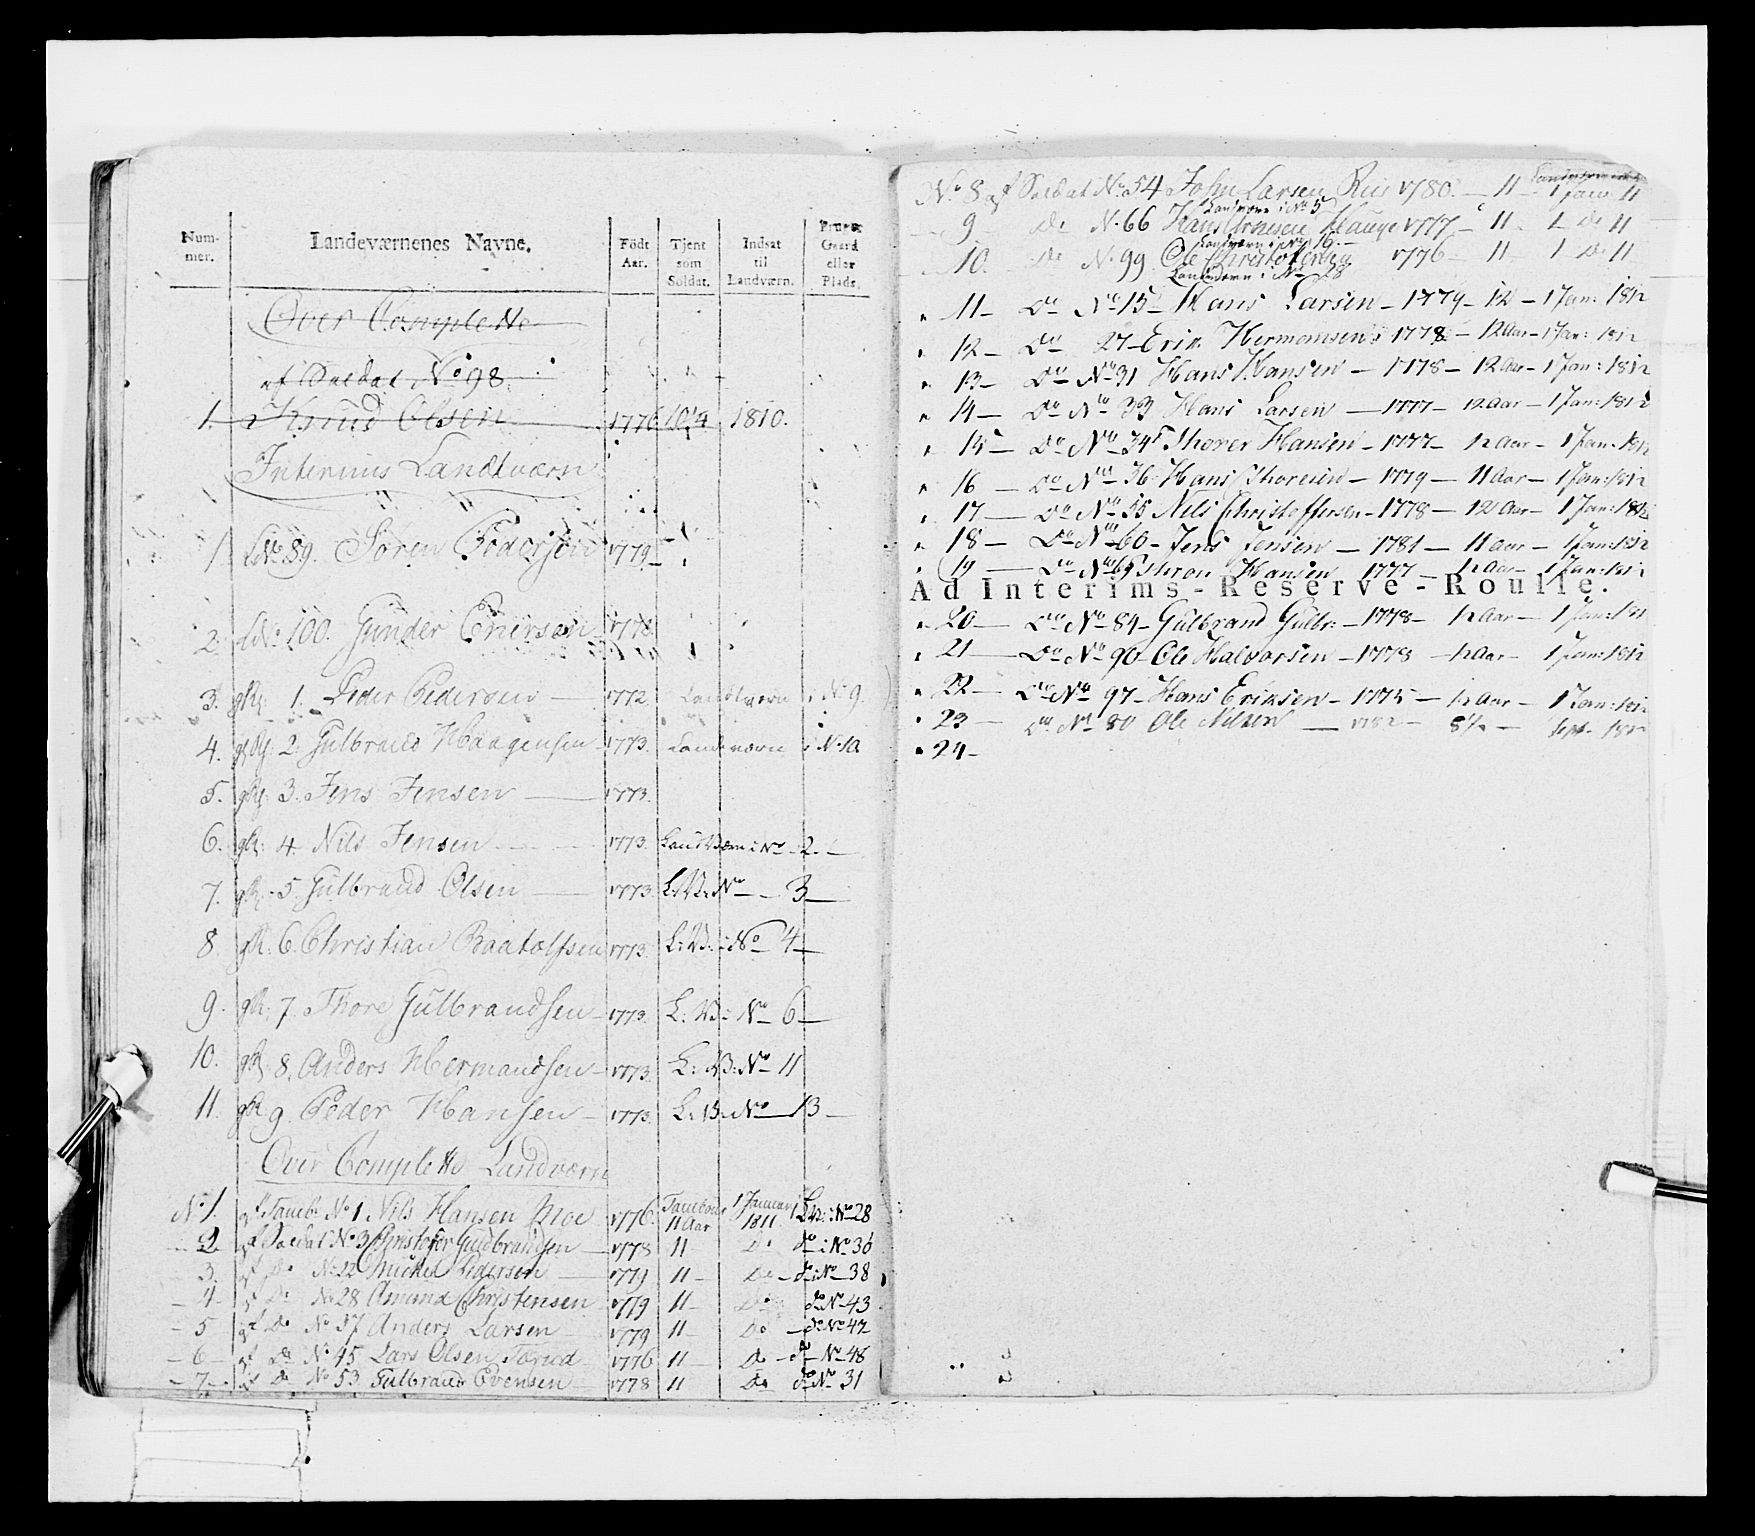 Num-
mer.
Landeværnenes Navne.
Födt
Aar.
Tjent
som
Soldat.
Indsat
til
Landværn.
Gaard
eller
Plads.
Over Complette
af Soldat No 98.
1. Knud Olsen 1776 10 1/4 1810.
Interims Landtværn
1 No 89. Søren Pedersen 1779
2. No 100. Gunder Ericsen 1778
3. 1. Peder Pedersen 1772 Landtværn i No 9.
4. 2. Gulbrand Haagensen 1773. Landeværn i No 10
5. 3. Jens Jensen 1773.
6. 4 Nils Jensen 1773. Landværn i No 2.
7. 5 Gulbrand Olsen 1773. L: V: No 3
8 6. Christian Raatolfsen 1773. L: V: i No 4
9. 7. Thore Gulbrandsen 1773. L: V: No 6
10. 8. Anders Hermandsen 1773. L: V: No 11
11. 9. Peder Hansen 1773. L: V: No 13
Over Complette Landværn
No 1. af Tamb: No 1 Nils Hansen Moe 1776. Tambour 11 Aar 1 Januari 1811 LV: No 28
2 af Soldat No 3 Christofer Gudbrandsen 1778 11 Do do i No 36
3. af Do No 22 Pedersen 1779 11 Do do No 38
4 af Do No 28 Amund Christensen 1779 11 Do do No 43
5 af Do No 37 Anders Larsen 1779 11 Do do No 42
6 af Do No 45 Lars Olsen 1776 11 Do do No 48
7 af Do No 53 Gulbrand Evensen 1778 11 Do do No 31
No 8 af Soldat No 54 John Larsen Rus 1780. 11 1 Janv 11
Landværn i No 5
9 do No 66 Hans Hauge 1777 11 1 do 11
Landværn i No 16.
10. do No 99 Ole Christofersen 1776 11 1 Do 11
Landværn i No 28
11 Do No 15 Hans Larsen 1779 12 1 Jan: 1812
12 Do 27 Erik Hermansen 1778 12 Aar 1 Jan: 1812
13 Do No 31 Hans Hansen 1778 12 Aar 1 Jan: 1812
14 Do No 33 Hans Larsen 1777 12 Aar 1 Jan: 1812
15 Do No 34 Thorer Hansen 1777 12 Aar 1 Jan: 1812
16 Do No 36 Hans Thoresen 1779 11 Aar 1 Jan: 1812
17 Do No 55 Nils Christoffersen 1778 12 Aar 1 Jan: 1812
18 Do No 60 Jens Jensen 1781 11 Aar 1 Jan: 1812
19 Do No Hansen 1777 12 Aar 1 Jan: 1812
Ad Interims-Reserve-Roulle.
20 Do No 84 Gulbrand Gulb: 1778 12 Aar 1 Jan: 181
21 Do No 90 Ole Halvorsen 1778 12 Aar 1 Jan: 1812
22 Do No 97 Hans Eriksen 1775 12 Aar 1 Jan: 1812
23 Do No 80 Ole Nilsen 1782 8 1/2 Sept. 1812
24